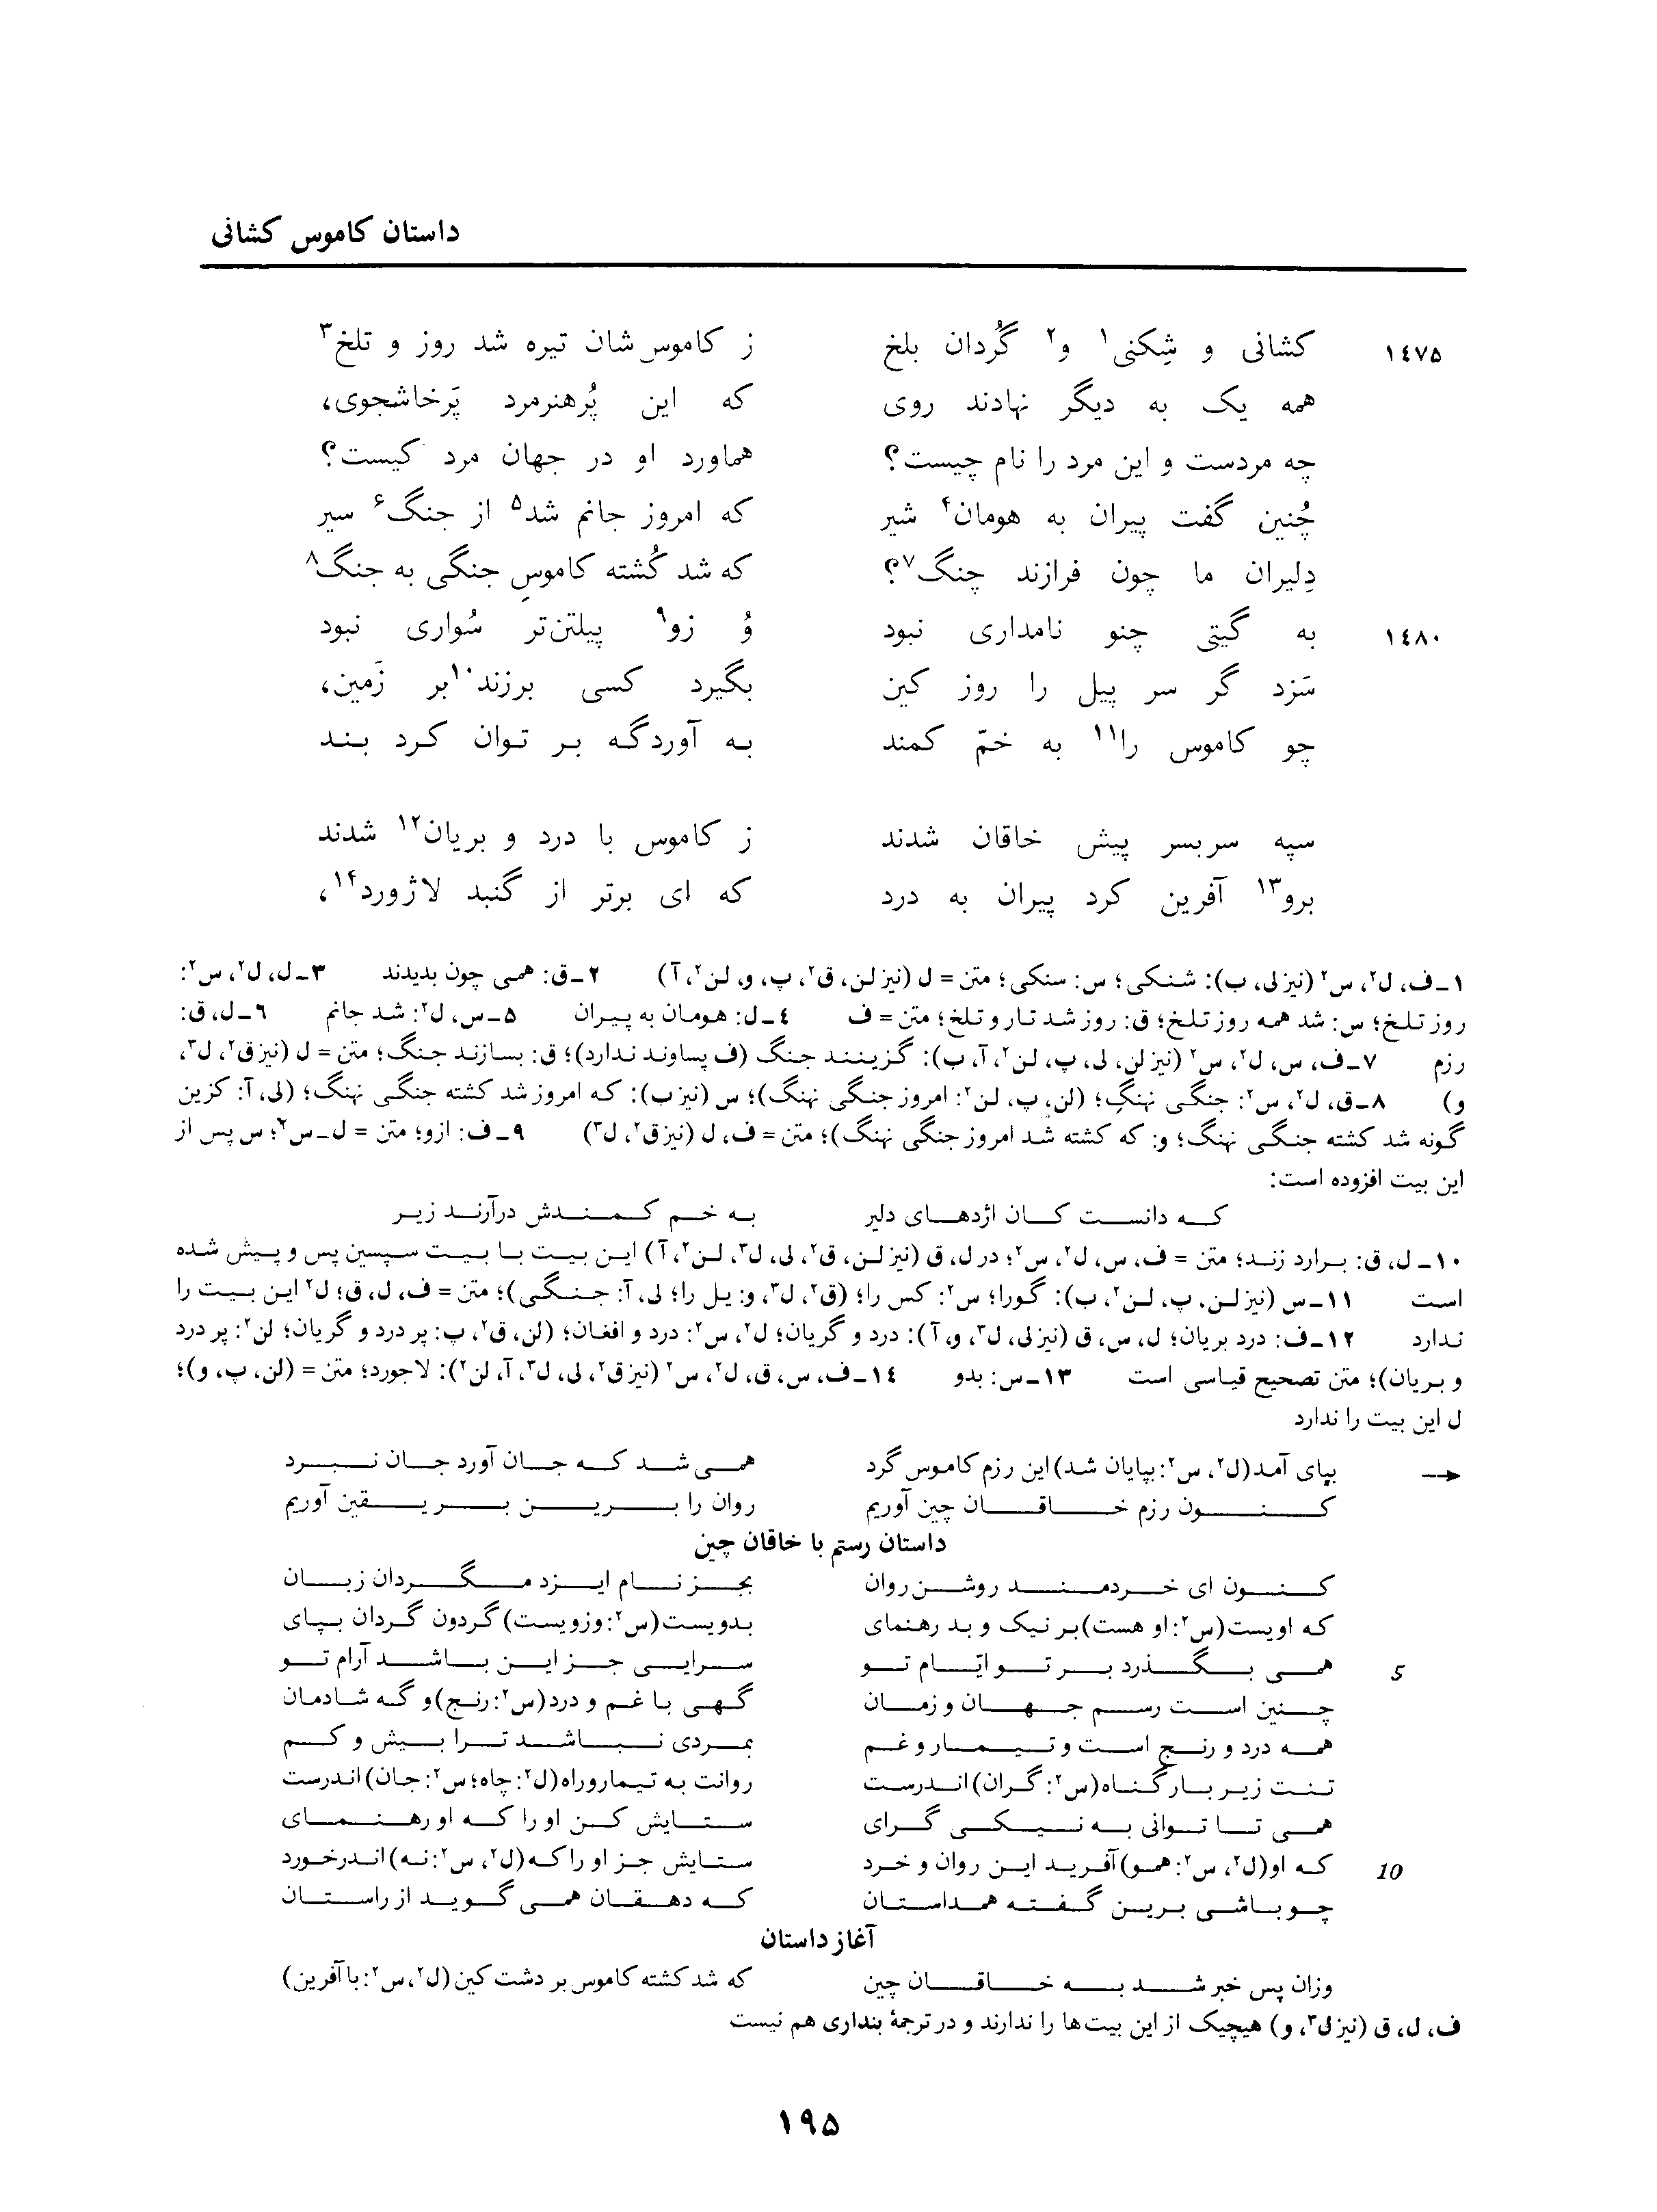 داستان کاموس کشانی
۱۴۷۵ کشانی و شِکنی۱ و۲ گُردان بلخ ز کاموس شان تیره شد روز و تلخ۳
همه یک به دیگر نهادند روی که این پُرهنرمرد پَرخاشجوی،
چه مردست و این مرد را نام چیست؟ هماورد او در جهان مرد کیست؟
چُنین گفت پیران به هومان۴ شیر که امروز جانم شد۵ از جنگ۶ سیر
دِلیران ما چون فرازند چنگ۷؟ که شد کُشته کاموسِ جنگی به جنگ۸
۱۴۸۰ به گیتی چنو نامداری نبود وُ زو۹ پیلتن‌تر سُواری نبود
سَزد گر سر پیل را روز کین بگیرد کسی برزند۱۰ بر زَمین،
چو کاموس را۱۱ به خمّ کمند به آوردگه بر توان کرد بند
سپه سربسر پیش خاقان شدند ز کاموس با درد و بریان۱۲ شدند
برو۱۳ آفرین کرد پیران به درد که ای برتر از گنبد لاژورد۱۴،
۱ـ ف، ل۲، س۲ (نیز لی، ب): شنکی؛ س: سنکی؛ متن = ل (نیز لن، ق۲، پ، و، لن۲، آ) ۲ـ ق: همی چون بدیدند ۳ـ ل، ل۲، س۲:
روز تلخ؛ س: شد همه روز تلخ؛ ق: روز شد تار و تلخ؛ متن = ف ۴ـ ل: هومان به پیران ۵ـ س، ل۲: شد جانم ۶ـ ل، ق:
رزم ۷ـ ف، س، ل۲، س۲ (نیز لن، لی، پ، لن۲، آ، ب): گزینند جنگ (ف پساوند ندارد)؛ ق: بسازند جنگ؛ متن = ل (نیز ق۲، ل۳،
و) ۸ـ ق، ل۲، س۲: جنگی نهنگ؛ (لن، پ، لن۲: امروز جنگی نهنگ)؛ س (نیز ب): که امروز شد کشته جنگی نهنگ؛ (لی، آ: کزین
گونه شد کشته جنگی نهنگ؛ و: که کشته شد امروز جنگی نهنگ)؛ متن = ف، ل (نیز ق۲، ل۳) ۹ـ ف: ازو؛ متن = ل ـ س۲؛ س پس از
این بیت افزوده است:
که دانست کان اژدهای دلیر به خم کمندش درآرند زیر
۱۰ـ ل، ق: برارد زند؛ متن = ف، س، ل۲، س۲؛ در ل، ق (نیز لن، ق۲، لی، ل۳، لن۲، آ) این بیت با بیت سپسین پس و پیش شده
است ۱۱ـ س (نیز لن، پ، لن۲، ب): گورا؛ س۲: کس را؛ (ق۲، ل۳، و: یل را؛ لی، آ: جنگی)؛ متن = ف، ل، ق؛ ل۲ این بیت را
ندارد ۱۲ـ ف: درد بریان؛ ل، س، ق (نیز لی، ل۳، و، آ): درد و گریان؛ ل۲، س۲: درد و افغان؛ (لن، ق۲، پ: پر درد و گریان؛ لن۲: پر درد
و بریان)؛ متن تصحیح قیاسی است ۱۳ـ س: بدو ۱۴ـ ف، س، ق، ل۲، س۲ (نیز ق۲، لی، ل۳، آ، لن۲): لاجورد؛ متن = (لن، پ، و)؛
ل این بیت را ندارد
→ بپای آمد (ل۲، س۲: بپایان شد) این رزم کاموس گرد همی شد که جان آورد جان نبرد
کنون رزم خاقان چین آوریم روان را برین بر یقین آوریم
داستان رستم با خاقان چین
کنون ای خردمند روشن روان بجز نام ایزد مگردان زبان
که اویست (س۲: او هست) بر نیک و بد رهنمای بدویست (س۲: وزویست) گردون گردان بپای
5 همی بگذرد بر تو ایّام تو سرایی جز این باشد آرام تو
چنین است رسم جهان و زمان گهی با غم و درد (س۲: رنج) و گه شادمان
همه درد و رنج است و تیمار و غم بمردی نباشد ترا بیش و کم
تنت زیر بار گناه (س۲: گران) اندرست روانت به تیمار و راه (ل۲: چاه؛ س۲: جان) اندرست
همی تا توانی به نیکی گرای ستایش کن او را که او رهنمای
10 که او (ل۲، س۲: همو) آفرید این روان و خرد ستایش جز او را که (ل۲، س۲: نه) اندرخورد
چو باشی برین گفته همداستان که دهقان همی گوید از راستان
آغاز داستان
وزان پس خبر شد به خاقان چین که شد کشته کاموس بر دشت کین (ل۲، س۲: با آفرین)
ف، ل، ق (نیز ل۳، و) هیچیک از این بیت‌ها را ندارند و در ترجمهٔ بنداری هم نیست
۱۹۵